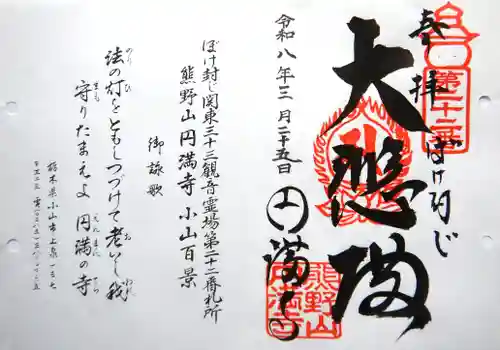 奉拝
ぼけ封じ
第二十二番
大悲殿
円満寺
熊野山
円満寺
令和八年三月二十五日
ぼけ封じ関東三十三観音霊場第二十二番札所
熊野山 円満寺 小山百景
御詠歌
法の灯をともしつづけて老いし我
守りたまえよ 円満の寺
栃木県小山市上泉一三七